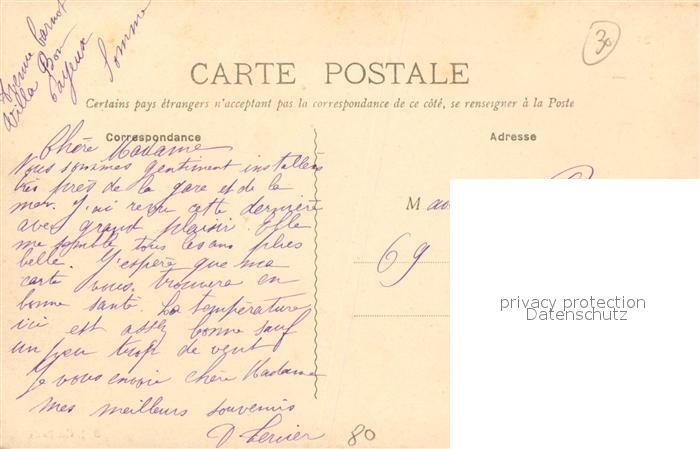 Avenue Carnot
Villa Bon
Somme
30
CARTE POSTALE
Certains pays étrangers n'acceptant pas la correspondance de ce côté, se renseigner à la Poste
Correspondance
Adresse
Chère Madame
Nous sommes gentiment installées
très près de la gare et de la
mer. J'ai revu cette dernière
avec grand plaisir. Elle
me semble tous les ans plus
belle. J'espère que ma
carte vous trouvera en
bonne santé. La température
ici est assez bonne sauf
un peu trop de vent
Je vous envoie chère Madame
mes meilleurs souvenirs
M
69
80
privacy protection
Datenschutz